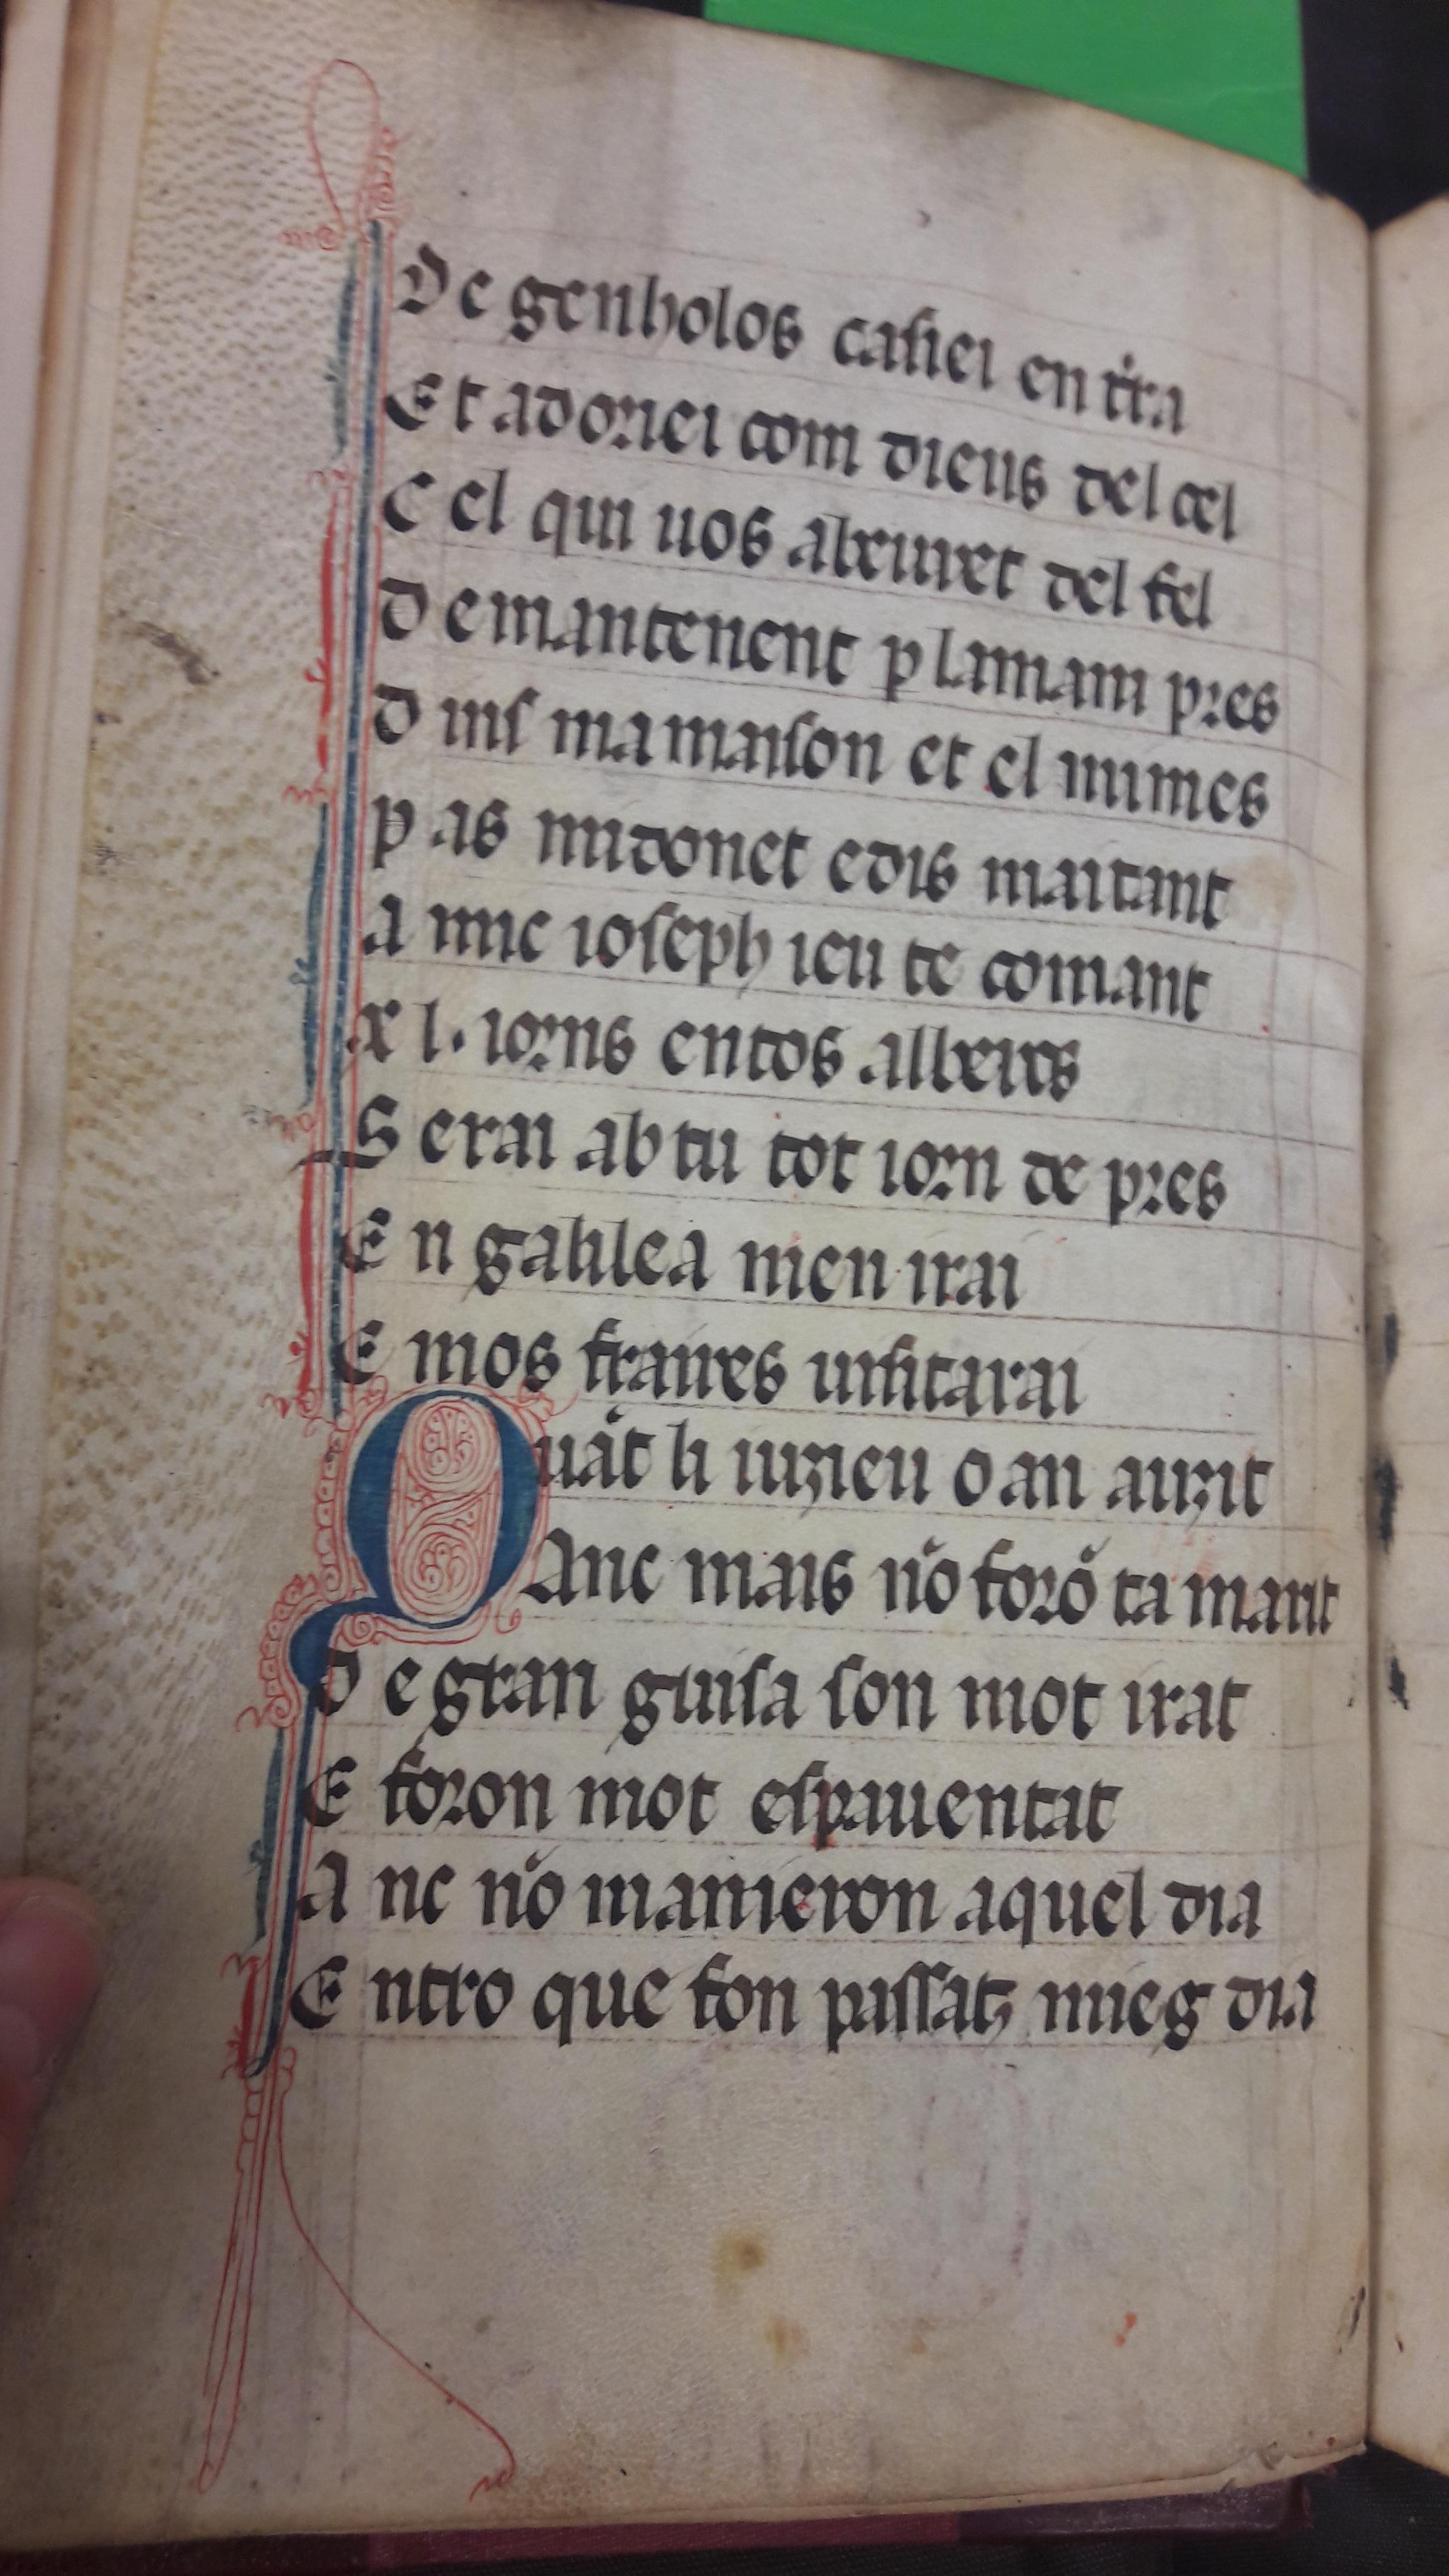 De genholos casiei en tr̓a
Et adoriei com dieus del cel
E el qui uos abeuret del fel
D emantenent p lamam pres
D ins ma maison et el mimes
P as midonet e dis maitant
A mic ioseph ieu te comant
xl. iorns en tos alberes
S erai ab tu tot iorn de pres
E n galilea men irai
E mos fraires uisitarai
Quāt li iuzieu o an auzit
Anc mais nō forō ta marit
D e gran guisa son mot irat
E foron mot espauentat
A nc nō manieron aquel dia
E ntro que fon passatz mieg dia